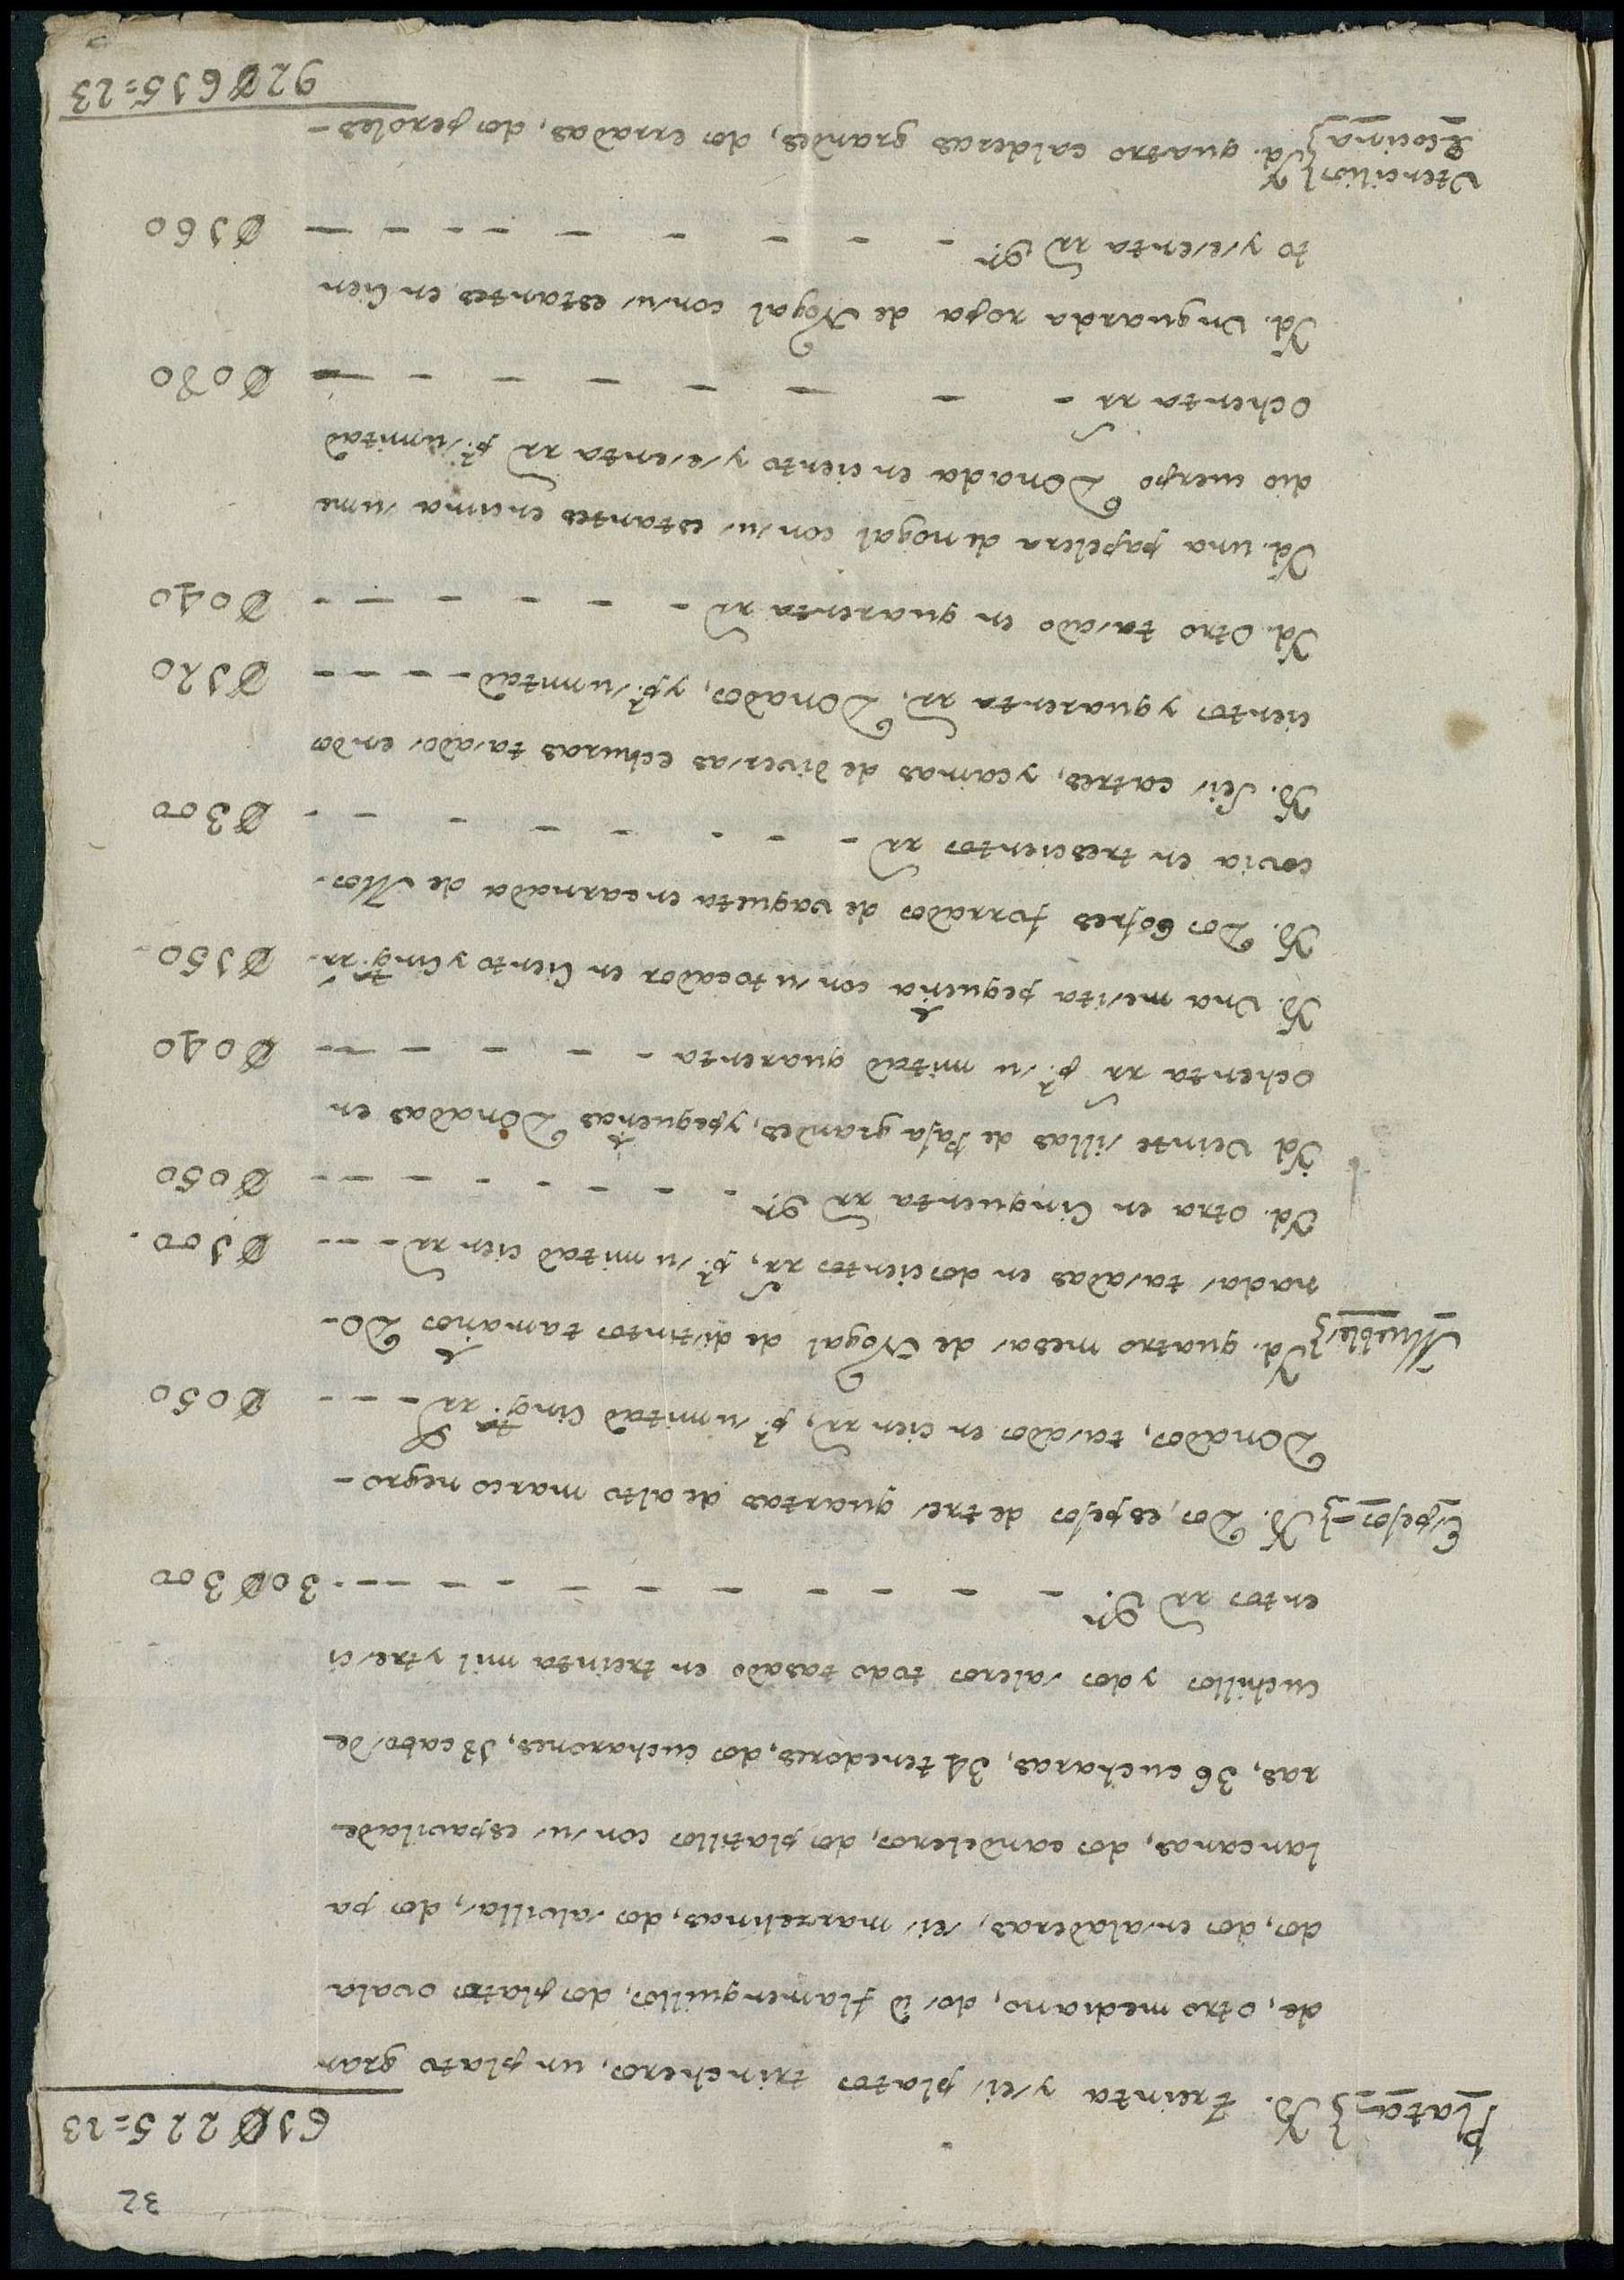 32
61Ø225=23
Plata} Yd. treinta y seis platos trincheros, un plato gran
de, otro mediano, dos d flamenquillos, dos platos ovala
dos, dos ensaladeras, seis marzelinas, dos salvillas, dos pa
lancanas, dos candeleros, dos platillos con sus espavilade
ras, 36 cucharas, 34 tenedores, dos cucharones, 18 cabos de
cuchillos y dos saleros todo tasado en treinta mil y tresci
entos rs vn - - - - - - - - - - 30Ø300
Espejos} Yd. Dos, espejos de tres quartas de alto marco negro -
Donados, tasados en cien rs, pr. su mitad Cinqta. rs - - - Ø050
Muebles} Yd. quatro mesas de Nogal de distintos tamaños Do-
nadas tasadas en doscientos rs, pr. su mitad cien rs - - - Ø100.
Yd. otra en Cinquenta rs vn. - - - - - - - - Ø050
Yd. veinte sillas de Paja grandes, y pequeñas Donadas en
ochenta rs pr. su mitad quarenta - - - - - - Ø040
Yd. una mesita pequeña con su tocador en Ciento y Cinqta. rs. Ø150-
Yd. Dos Cofres forrados de vaqueta encarnada de Mos-
covia en trescientos rs - - - - - - - - Ø300
Yd. Seis catres, y camas de diversas echuras tasados en dos
cientos y quarenta rs, Donados, y pr. su mitad - - - - Ø120
Yd. Otro tasado en quarenta rs - - - - - - - Ø040
Yd. una papelera de nogal con sus estantes encima su me
dio cuerpo Donada en ciento y sesenta rs pr. su mitad
ochenta rs - - - - - - - - Ø080
Yd. un guarda ropa de Nogal con sus estantes en Cien
to y sesenta rs vn. - - - - - - - - - Ø160
Vtencilios}
Dcocina} Yd. quatro calderas grandes, dos erradas, dos peroles-
92Ø615=23